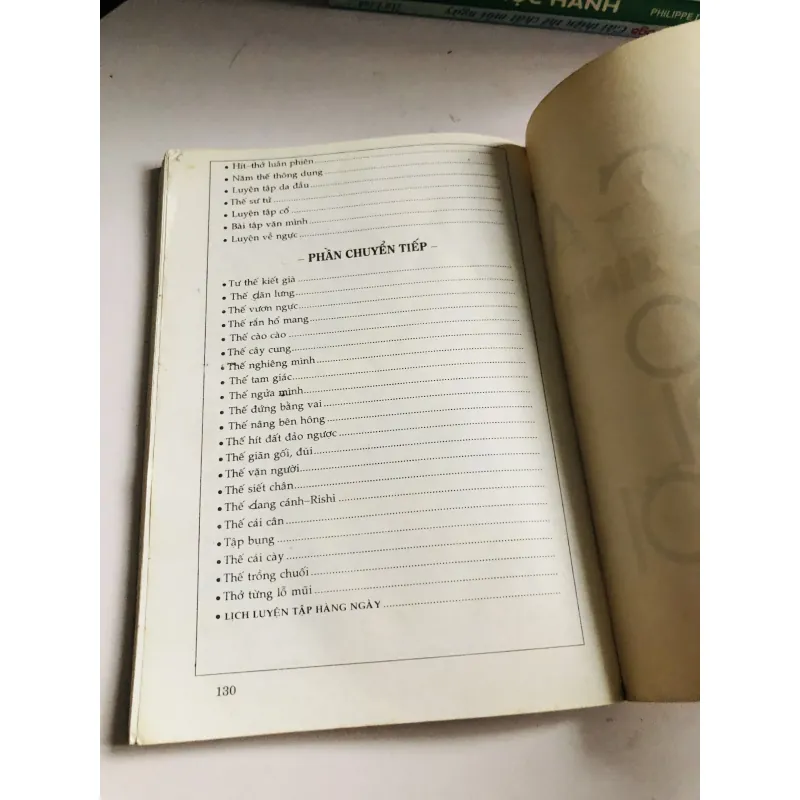 ỌC HÀNH
PHILIPPE
• Hít-thở luân phiên
• Năm thế thông dụng
• Luyện tập da đầu
• Thế sư tử
• Luyện tập cổ
• Bài tập vặn mình
• Luyện về ngực
– PHẦN CHUYỂN TIẾP –
• Tư thế kiết già
• Thế dãn lưng
• Thế vươn ngực
• Thế rắn hổ mang
• Thế cào cào
• Thế cây cung
• Thế nghiêng mình
• Thế tam giác
• Thế ngửa mình
• Thế đứng bằng vai
• Thế nâng bên hông
• Thế hít đất đảo ngược
• Thế giãn gối, đùi
• Thế vặn người
• Thế siết chân
• Thế dang cánh–Rishi
• Thế cái cân
• Tập bụng
• Thế cái cày
• Thế trồng chuối
• Thở từng lỗ mũi
• LỊCH LUYỆN TẬP HÀNG NGÀY
130